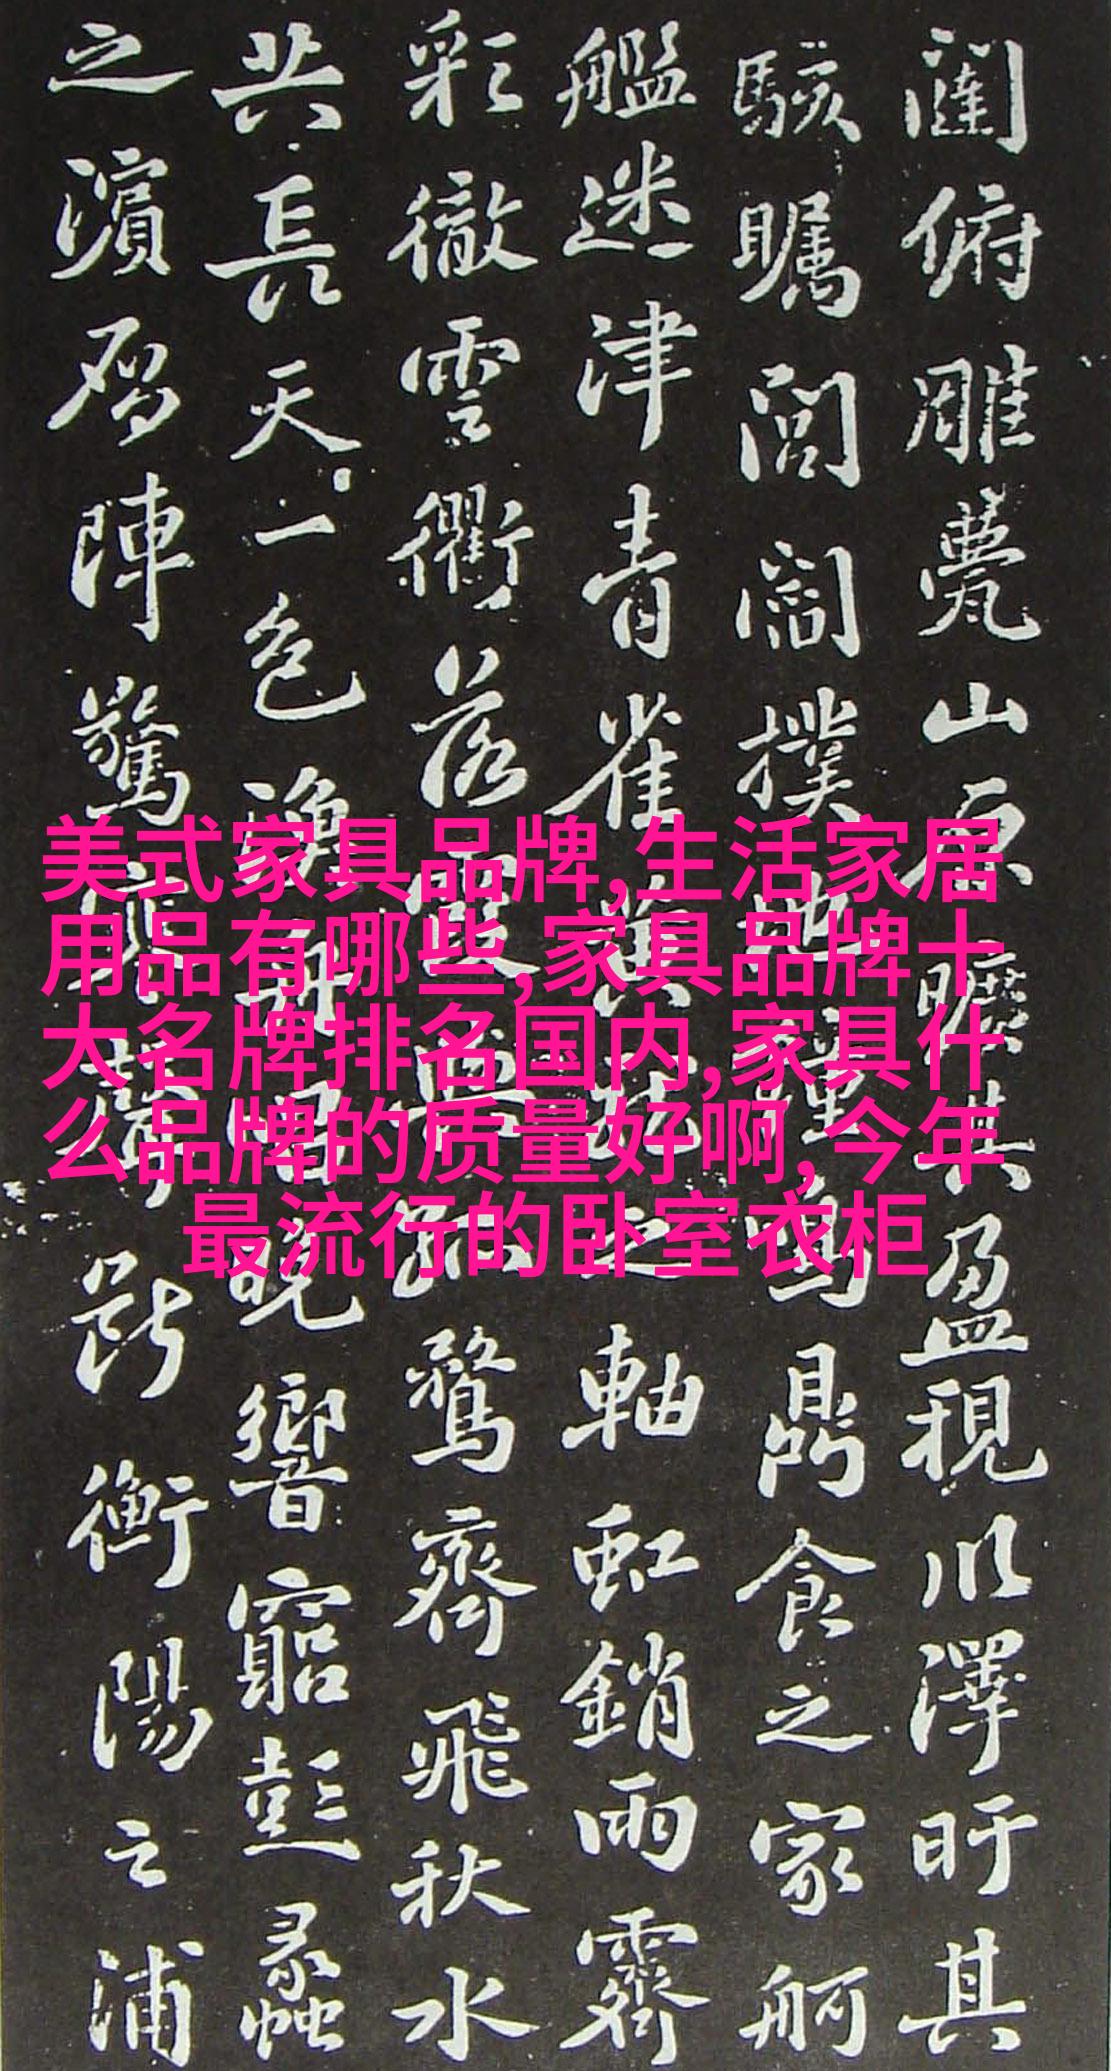 闥俯雕甍山原曠其盈視川澤盱其
駭矚閭閻撲地鍾鳴鼎食之家舸
艦迷津青雀黃龍之軸虹銷雨霽
彩徹雲衢落霞與孤鶩齊飛秋水
共長天一色漁舟唱晚響窮彭蠡
之濱雁陣驚寒聲斷衡陽之浦
美式家具品牌,生活家居
用品有哪些,家具品牌十
大名牌排名国内,家具什
么品牌的质量好啊,今年
最流行的卧室衣柜